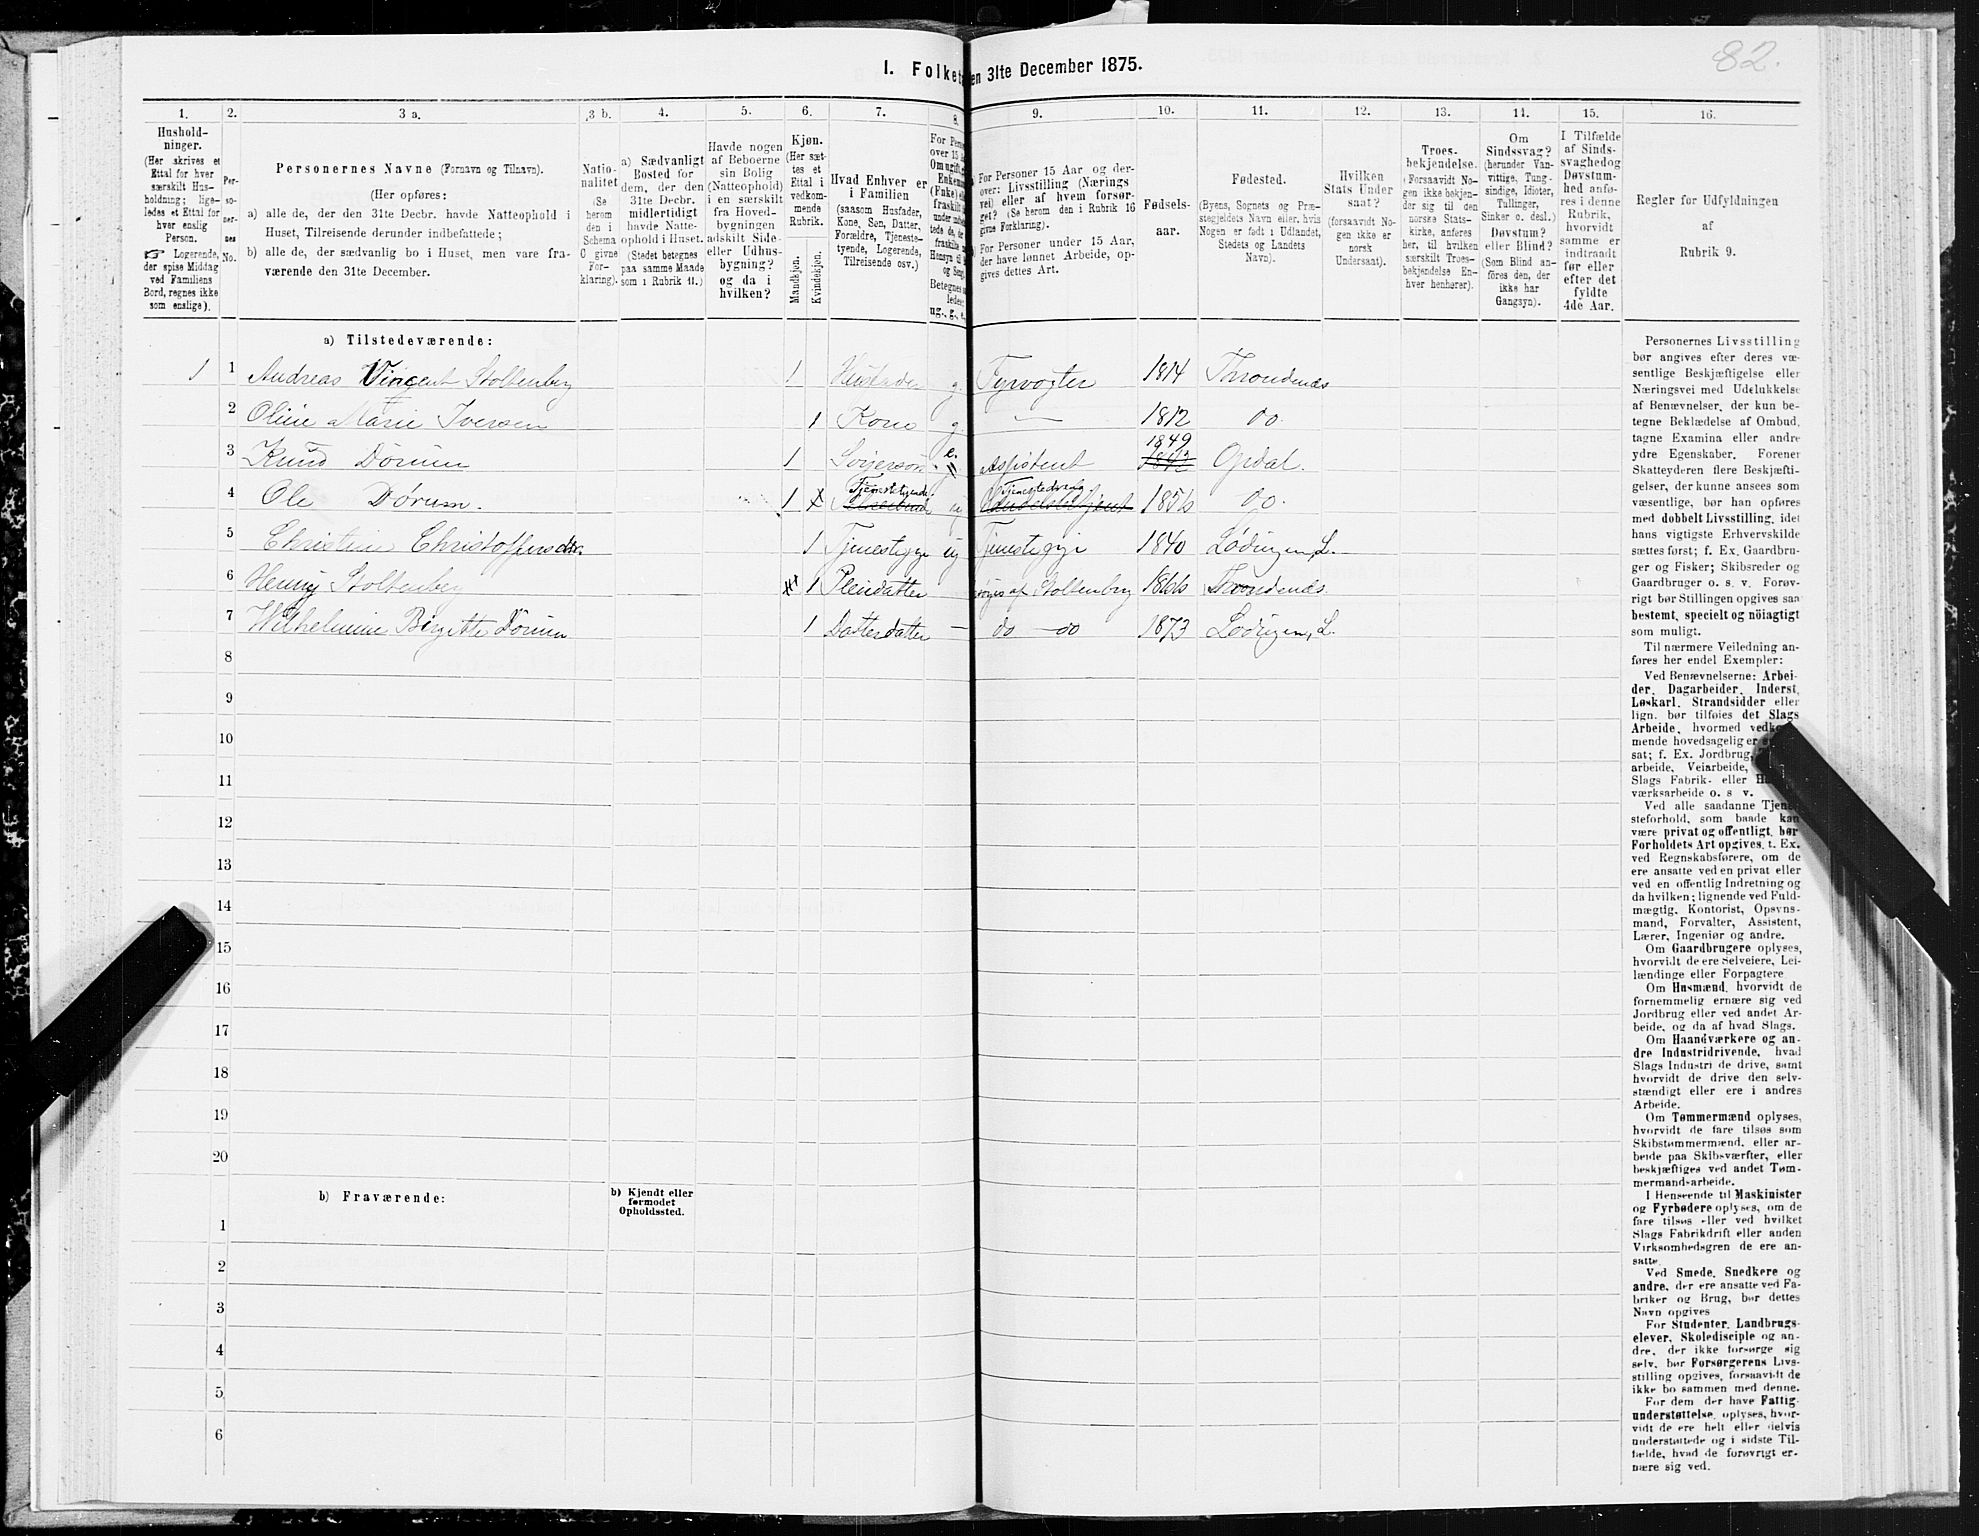 82.
I. Folket en 31te December 1875.
1.
Hushold-
ninger.
(Her skrives et
Ettal for hver
særskilt Hus-
holdning; lige-
ledes et Ettal for
hver enslig
Person.
☞ Logerende,
der spise Middag
ved Familiens
Bord, regnes ikke
som enslige).
2.
Per-
so-
ner-
nes
No.
3 a.
Personernes Navne (Fornavn og Tilnavn).
(Her opføres:
a) alle de, der den 31te Decbr. havde Natteophold i
Huset, Tilreisende derunder indbefattede;
b) alle de, der sædvanlig bo i Huset, men vare fra-
værende den 31te December.
3 b.
Natio-
nalitet
(Se
herom
den i
Schema
C givne
For-
klaring).
4.
a) Sædvanligt
Bosted for
dem, der den
31te Decbr.
midlertidigt
havde Natte-
ophold i Huset.
(Stedet betegnes
paa samme Maade
som i Rubrik 11.)
5.
Havde nogen
af Beboerne
sin Bolig
(Natteophold)
i en særskilt
fra Hoved-
bygningen
adskilt Side-
eller Udhus-
bygning?
og da i
hvilken?
6.
Kjøn.
(Her sæt-
tes et
Ettal i
vedkom-
mende
Rubrik.
Mandkjøn.
Kvindekjøn.
7.
Hvad Enhver er
i Familien
(saasom Husfader,
Kone, Søn, Datter,
Forældre, Tjeneste-
tyende, Logerende,
Tilreisende osv.)
8.
For Pers
over 15
Om ugift, g
Enkem
(Fnke)
fraskilt
ug., g., e.
9.
For Personer 15 Aar og der-
over: Livsstilling (Nærings
vei) eller af hvem forsør-
get? (Se herom den i Rubrik 16
givne Forklaring).
For Personer under 15 Aar,
der have lønnet Arbeide, op-
gives dettes Art.
10.
Fødsels-
aar.
11.
Fødested.
(Byens, Sognets og Præ-
stegjeldets Navn eller, hvis
Nogen er født i Udlandet,
Stedets og Landets
Navn).
12.
Hvilken
Stats Under
saat?
(forsaavidt No-
gen ikke er
norsk
Undersaat).
13.
Troes-
bekjendelse.
(Forsaavidt No-
gen ikke bekjen-
der sig til den
norske Stats-
kirke, anføres
her, til hvilken
særskilt Troes-
bekjendelse En-
hver henhører).
14.
Om
Sindssvag?
(herunder Van-
vittige, Tung-
sindige, Idioter,
Tullinger,
Sinker o. desl.)
Døvstum?
eller Blind?
(Som Blind an-
føres den, der
ikke har
Gangsyn).
15.
I Tilfælde
af Sinds-
svaghedog
Døvstum-
hed anfø-
res i denne
Rubrik,
hvorvidt
samme er
indtraadt
før eller
efter det
fyldte
4de Aar.
16.
Regler for Udfyldningen
af
Rubrik 9.
a) Tilstedeværende:
1 1 Andreas Vincent Stoltenberg 1 Husfader g Fyrvogter 1814 Throndenæs
2 Oline Marie Iversen 1 Kone g — 1812 do.
3 Knud Dørum 1 Svigersøn e. Assistent 1849 1842 Opdal.
4 Ole Dørum. 1 x Tjenestetyende ug Tjenestedreng 1856 do.
5 Christine Christoffersdtr. 1 Tjenestepige ug Tjenestepige 1840 Lødingen, L.
6 Henny Stoltenberg 1 Pleiedatter forsørges af Stoltenberg 1866 Throndenæs
7 Wilhelmine Birgitte Dørum 1 Datterdatter — do — do 1873 Lødingen, L.
8
9
10
11
12
13
14
15
16
17
18
19
20
b) Fraværende:
b) Kjendt eller
formodet
Opholdssted.
1
2
3
4
5
6
Personernes Livsstilling
bør angives efter deres væ-
sentlige Beskjæftigelse eller
Næringsvei med Udelukkelse
af Benævnelser, der kun be-
tegne Beklædelse af Ombud,
tagne Examina eller andre
ydre Egenskaber. Forener
Skatteyderen flere Beskjæfti-
gelser, der kunne ansees som
væsentlige, bør han opføres
med dobbelt Livsstilling, idet
hans vigtigste Erhvervskilde
sættes først; f. Ex. Gaardbru-
ger og Fisker; Skibsreder og
Gaardbruger o. s. v. Forøv-
rigt bør Stillingen opgives saa
bestemt, specielt og nöiagtigt
som muligt.
Til nærmere Veiledning an-
føres her endel Exempler:
Ved Benævnelserne: Arbei-
der, Dagarbeider, Inderst,
Løskarl, Strandsidder eller
lign. bør tilføies det Slags
Arbeide, hvormed vedkom-
mende hovedsagelig er
sat; f. Ex. Jordbrug,
arbeide, Veiarbeide,
Slags Fabrik- eller
værksarbeide o. s v.
Ved alle saadanne Tjene-
steforhold, som baade kan
være privat og offentligt, bør
Forholdets Art opgives, t. Ex.
ved Regnskabsførere, om de
ere ansatte ved en privat eller
ved en offentlig Indretning og
da hvilken; lignende ved Fuld-
mægtig, Kontorist, Opsyns-
mand, Forvalter, Assistent,
Lærer, Ingeniør og andre.
Om Gaardbrugere oplyses,
hvorvidt de ere Selveiere, Lei-
lændinge eller Forpagtere
Om Husmænd, hvorvidt de
fornemmelig ernære sig ved
Jordbrug eller ved andet Ar-
beide, og da af hvad Slags.
Om Haandværkere og an-
dre Industridrivende, hvad
Slags Industri de drive, samt
hvorvidt de drive den selv-
stændigt eller ere i andres
Arbeide.
Om Tømmermænd oplyses,
hvorvidt de fare tilsøs som
Skibstømmermænd, eller ar-
beide paa Skibsværfter, eller
beskjæftiges ved andet Tøm-
mermandsarbeide.
I Henseende til Maskinister
og Fyrbødere oplyses, om de
fare tilsøs eller ved hvilket
Slags Fabrikdrift eller anden
Virksomhedsgren de ere an-
satte.
Ved Smede, Snedkere og
andre, der ere ansatte ved Fa-
briker og Brug, bør dettes
Navn opgives
For Studenter, Landbrugs-
elever, Skoledisciple og an-
dre, der ikke forsørge sig
selv, bør Forsørgerens Livs-
stilling opgives, forsaavidt de
ikke bo sammen med denne.
For dem, der have Fattig-
understøttelse, oplyses, hvor-
vidt de ere helt eller delvis
understøttede og i sidste Til-
fælde, hvad de forøvrigt er-
nære sig ved.